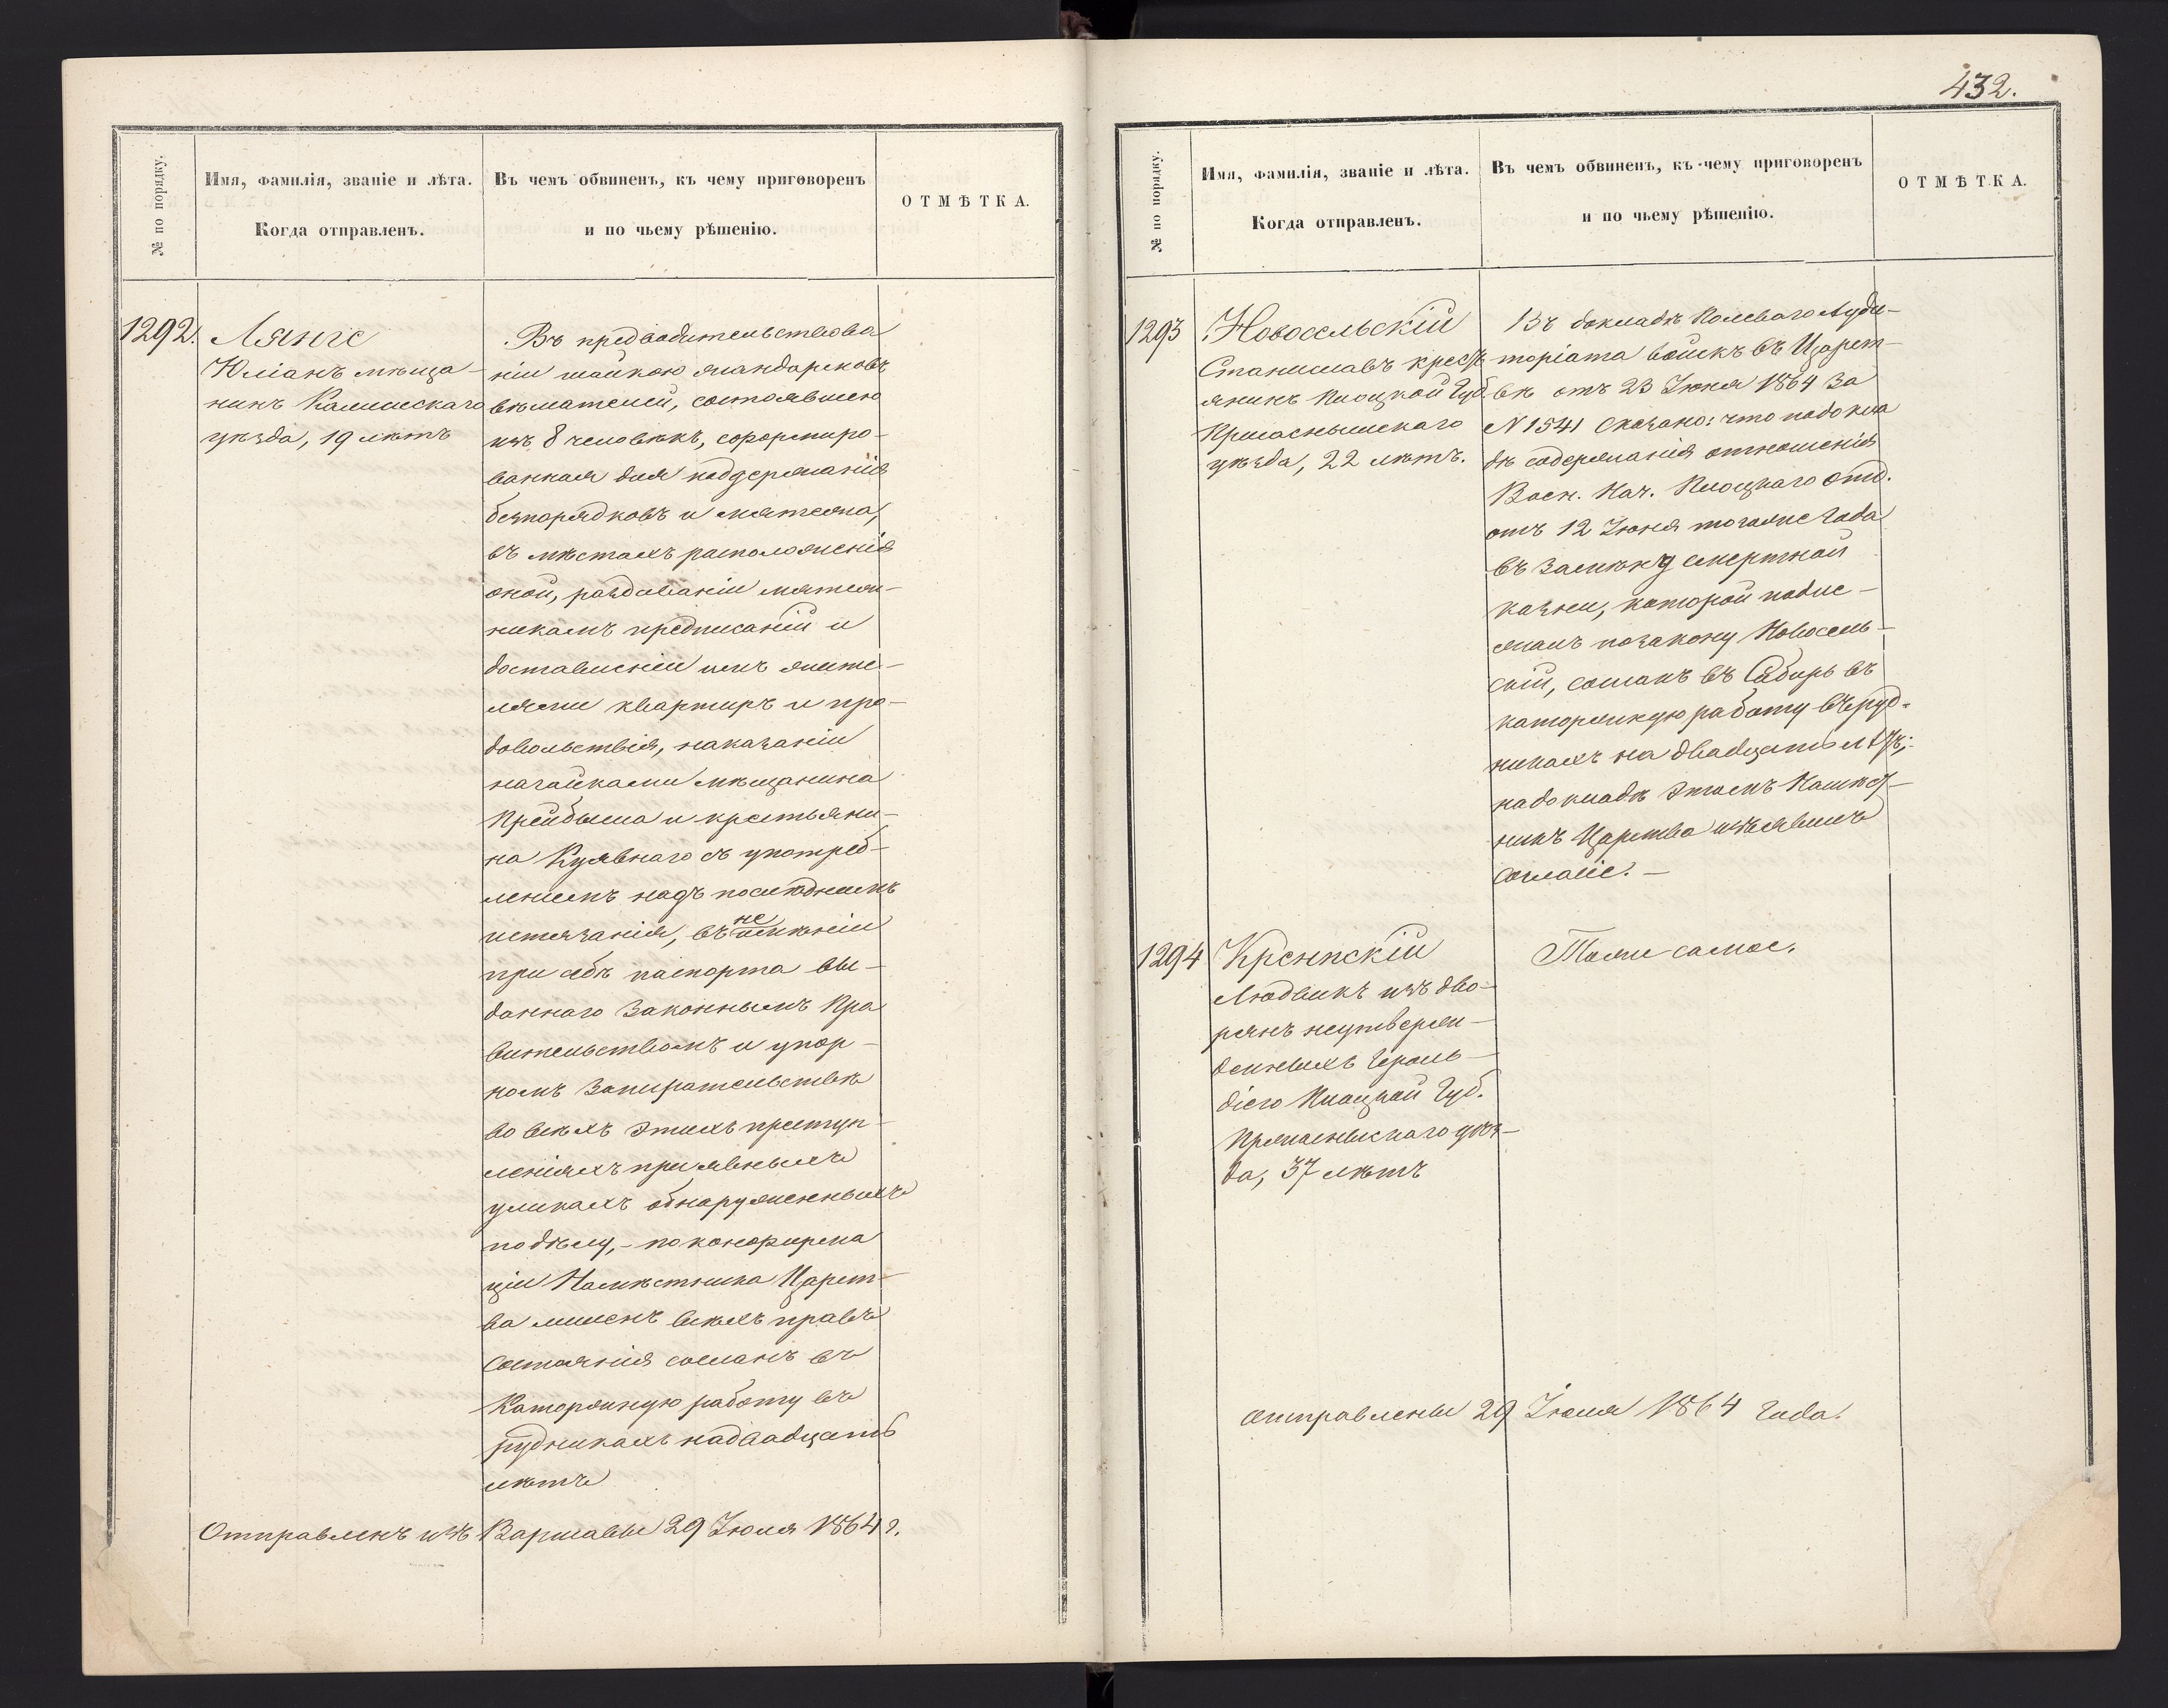 432.
№ по порядку.
Имя, фамилія, званіе и лѣта.
Когда отправленъ.
Въ чемъ обвиненъ, къ чему приговоренъ
и по чьему рѣшенію.
ОТМѢТКА.
1292.
Лянге
Юліанъ мѣща-
нинъ Калишскаго
уѣзда, 19 лѣтъ
Въ предводительствова
ніи шайкою жандармовъ
вѣшателей, состоявшею
изъ 8 человѣкъ, сформиро-
ванная для поддержанія
безпорядковъ и мятежа,
въ мѣстахъ расположенія
оной, раздаваніи мятеж-
никамъ предписаній и
доставленіи имъ жите-
лями квартиръ и про-
довольствія, наказаніи
нагайками мѣщанина
Прейбыша и крестьяни-
на Куявнаго съ употреб-
леніемъ надъ послѣднимъ
истязанія, въ неимѣніи
при себѣ паспорта вы-
даннаго законнымъ Пра
вительствомъ и упор-
номъ запирательствѣ
во всѣхъ этихъ преступ-
леніяхъ при явныхъ
уликахъ обнаруженныхъ
по дѣлу, - по конфирма
ціи Намѣстника Царст-
ва лишенъ всѣхъ правъ
состоянія сосланъ въ
Каторжную работу въ
рудникахъ на двадцать
лѣтъ
Отправленъ изъ Варшавы 29 Іюля 1864 г.
№ по порядку.
Имя, фамилія, званіе и лѣта.
Когда отправленъ.
Въ чемъ обвиненъ, къ чему приговоренъ
и по чьему рѣшенію.
ОТМѢТКА.
1293
Новосельскій
Станиславъ крестъ
янинъ Плоцкой Губ
Пржаснышскаго
уѣзда, 22 лѣтъ.
Въ докладѣ Полеваго Ауди-
торіата войскъ въ Царст-
вѣ отъ 23 Іюня 1864 за
N 1541 сказано: что по докла
дѣ содержанія отношенія
Воен. Нач. Плоцкаго Отд.
отъ 12 Іюня того же Года
въ замѣну смертной
казни, которой подле-
жалъ по закону Новосель-
скій, сосланъ въ Сибирь въ
каторжную работу въ руд-
никахъ на двадцать лѣтъ;
на докладѣ этомъ Намѣст-
никъ Царства изъявилъ
согласіе. —
1294
Кренпскій
Людвикъ изъ дво-
рянъ неутверж-
денныхъ Героль-
діею Плоцкой Губ.
Пржаснышскаго уѣз-
да, 37 лѣтъ
Тоже самое.
отправлены 29 Іюля 1864 Года.